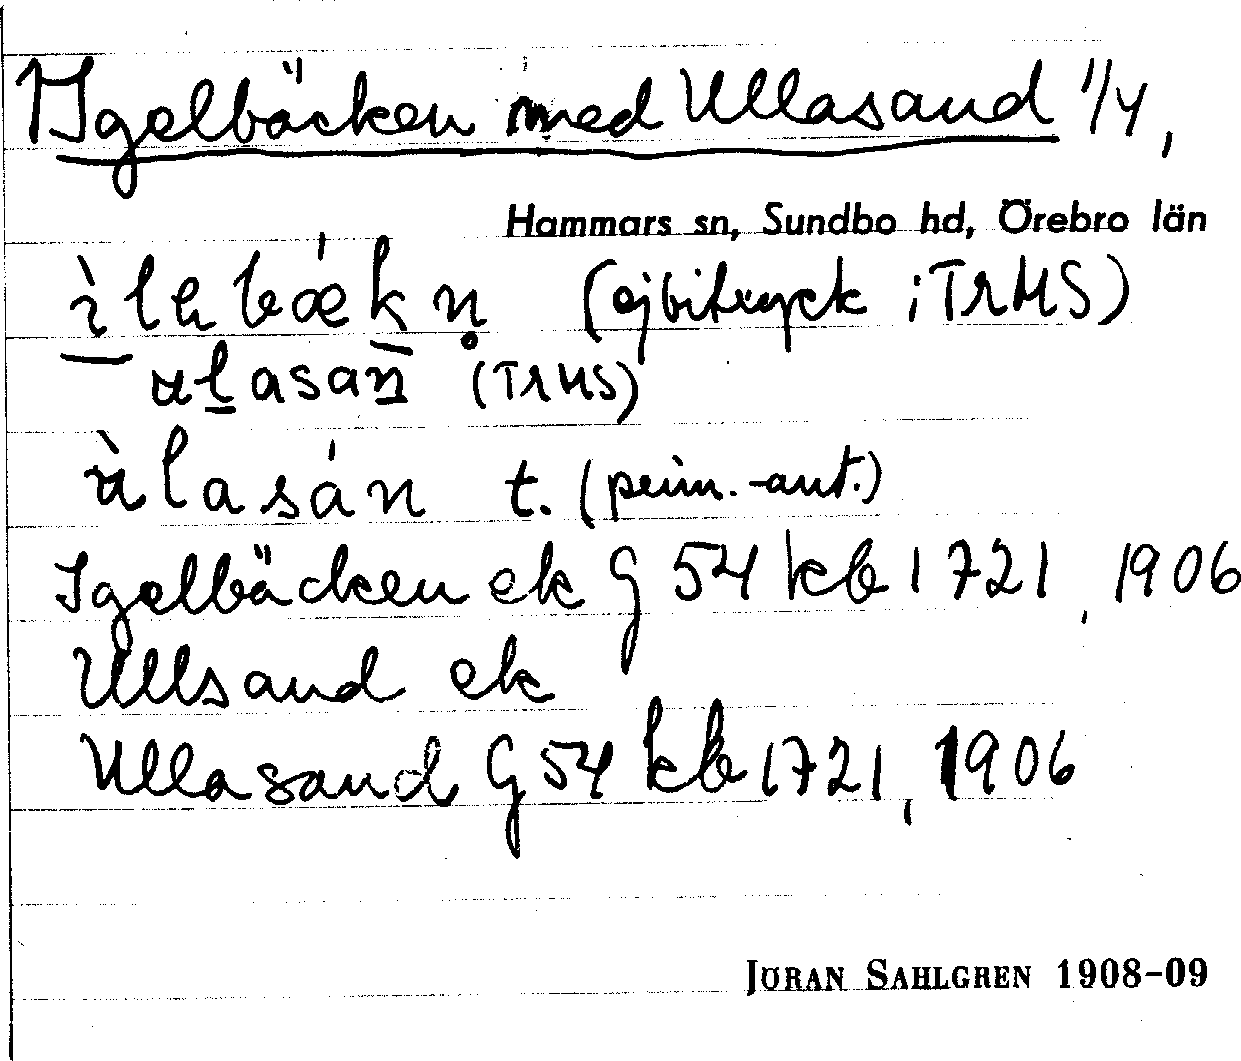 Igelbäcken med Ullasand 1/4,
Hammars sn, Sundbo hd, Örebro län
ìlabǽkn̥ (ej bitryck i TRMS)
ulasan (TRMS)
ùlasán t. (peim.-ant.)
Igelbäcken ek G 54 kb 1721, 1906
Ullsand ek
Ullasand G 54 kb 1721, 1906
JÖRAN SAHLGREN 1908-09